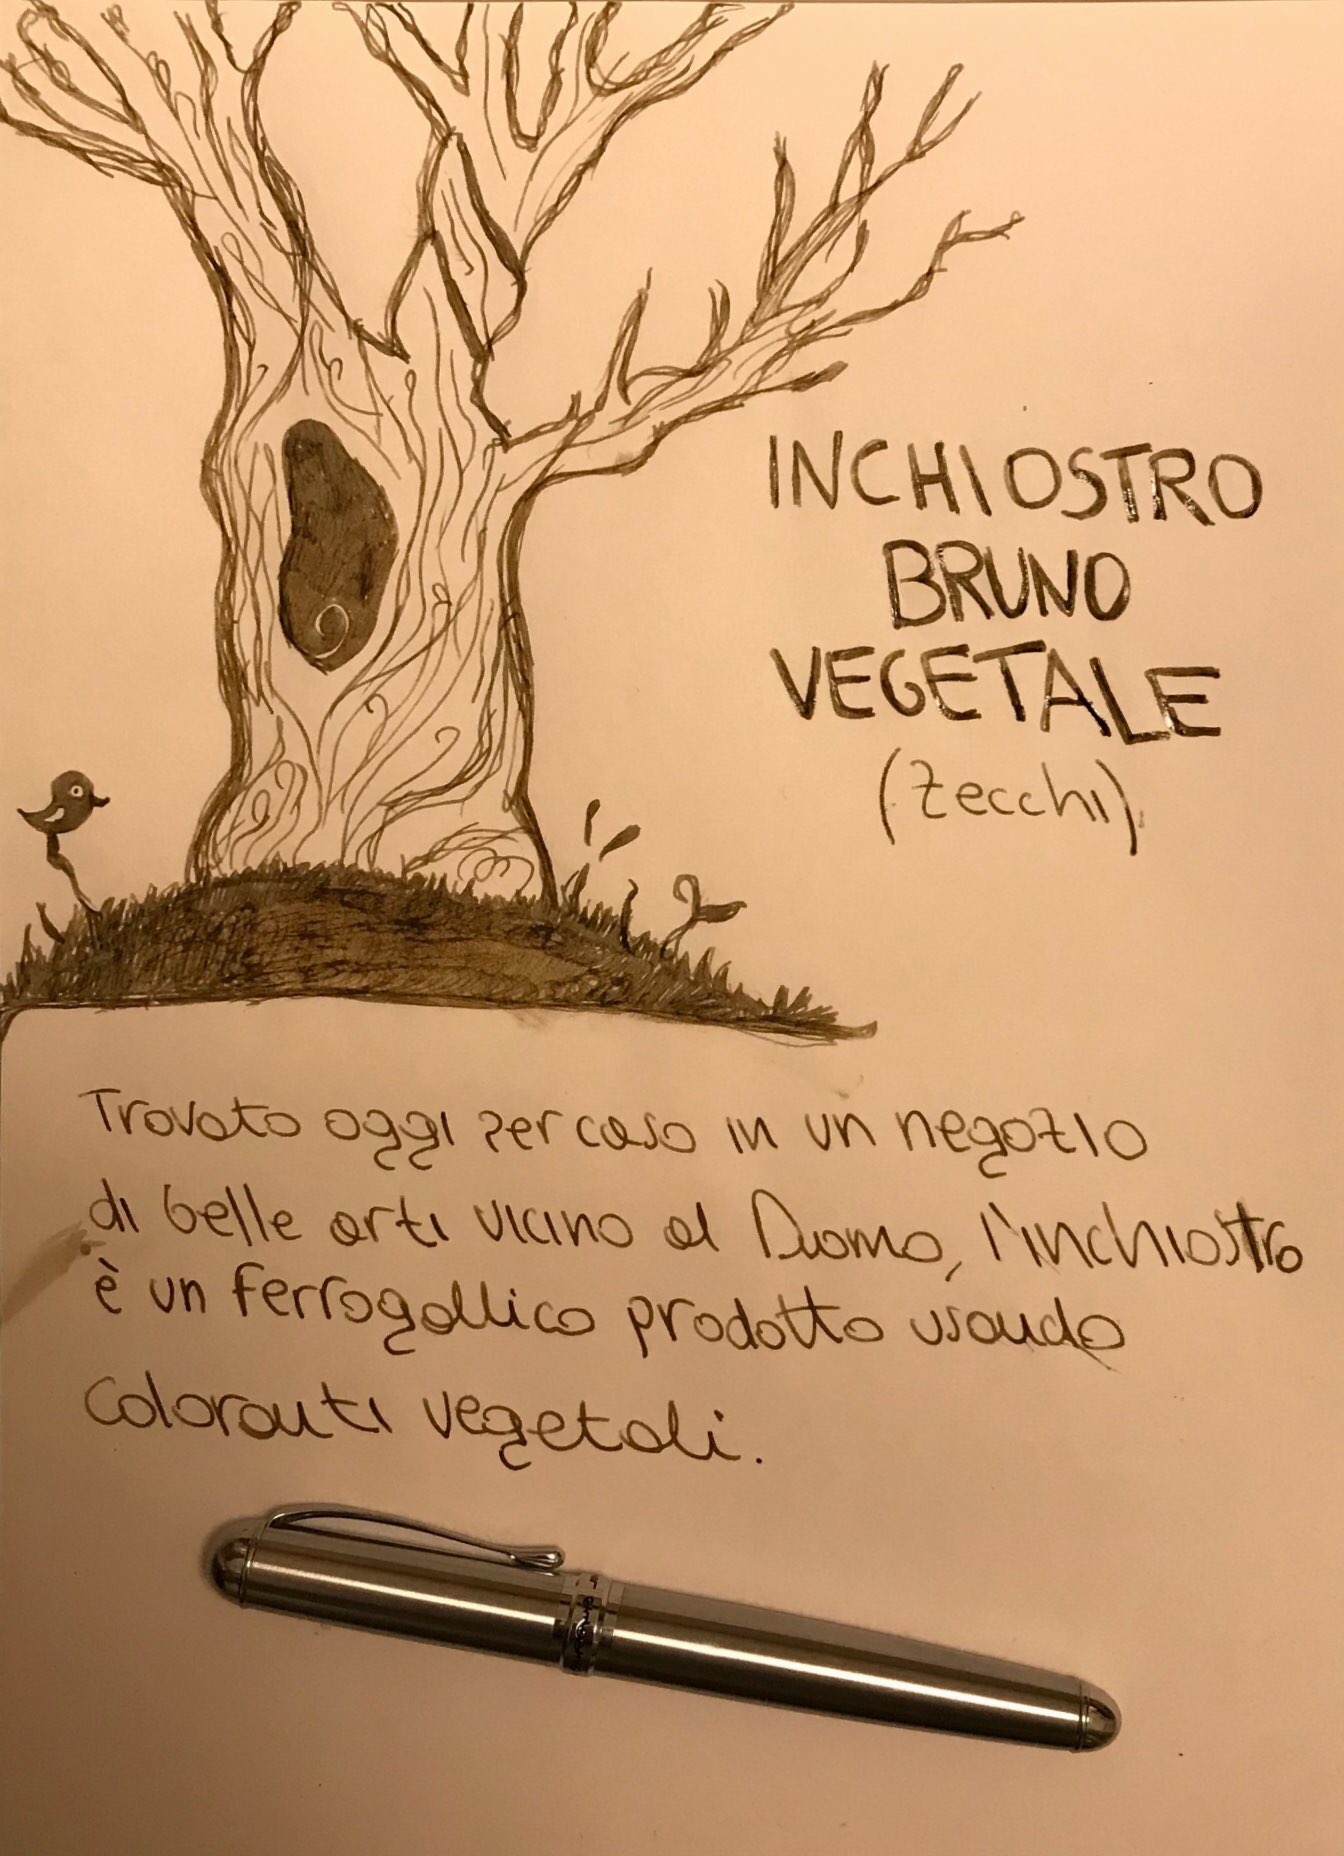 INCHIOSTRO
BRUNO
VEGETALE
(Zecchi)
Trovato oggi per caso in un negozio
di belle arti vicino al Duomo, l'inchiostro
è un ferrogallico prodotto usando
coloranti vegetali.